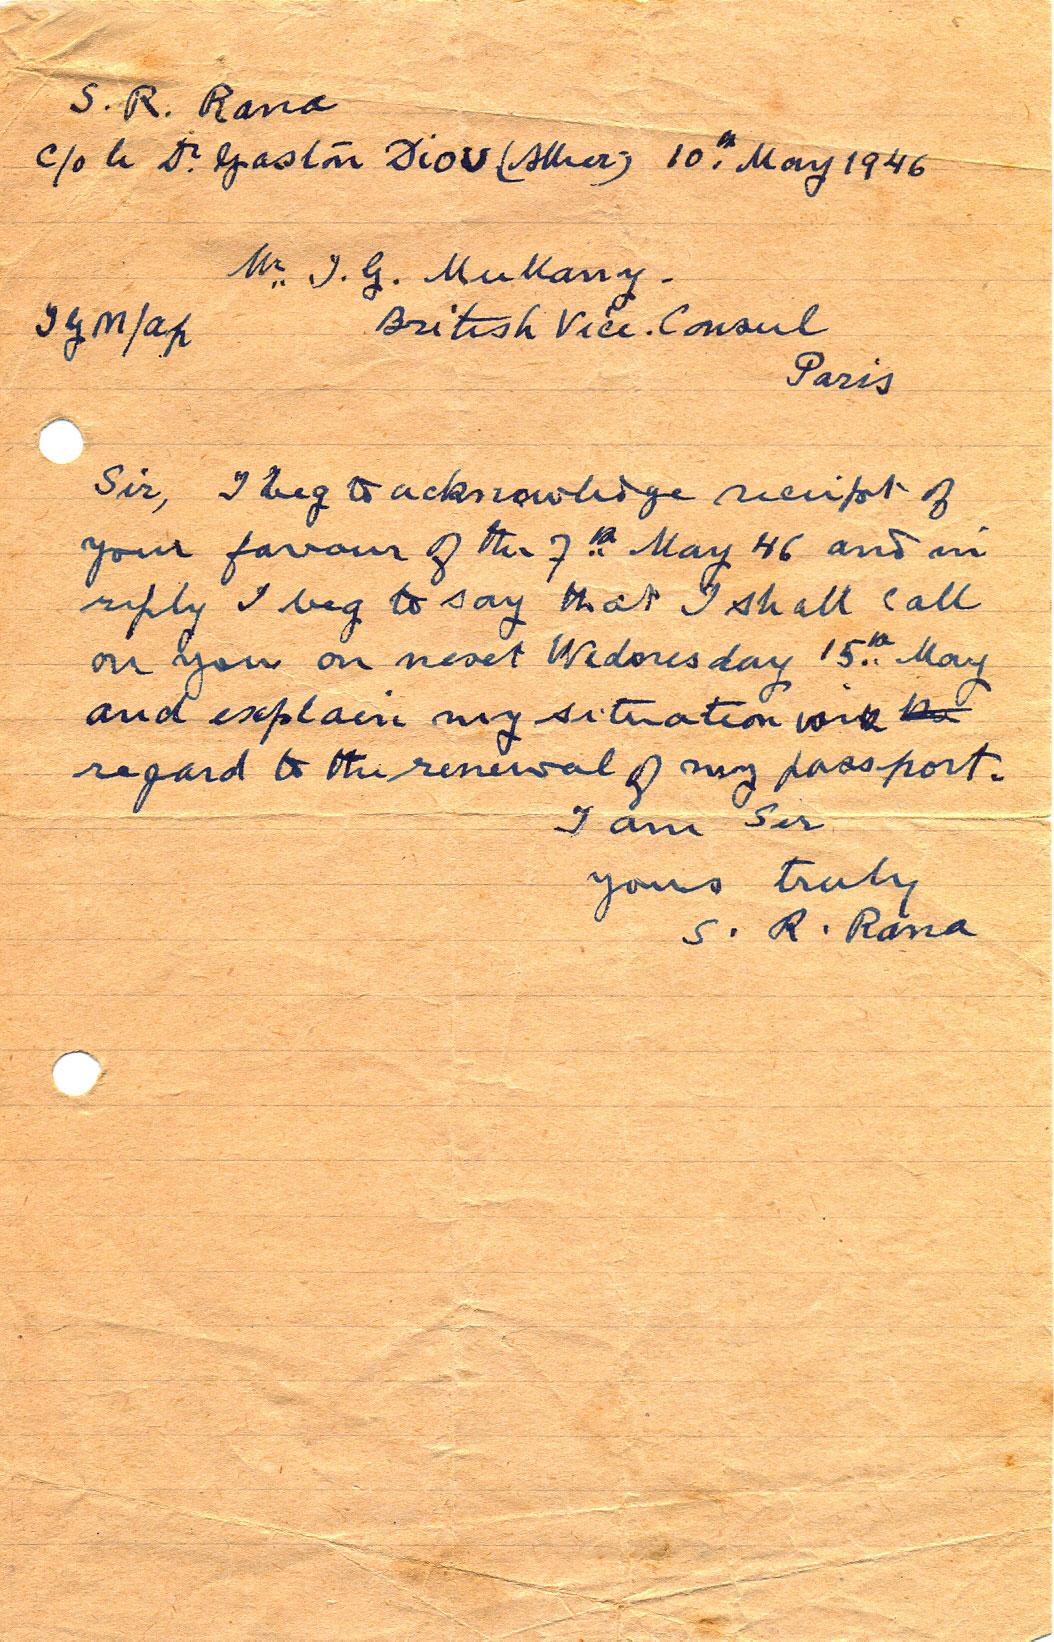 S. R. Rana
c/o le Dr Gaston Diou (Allier) 10th May 1946
Mr. J. G. Mullarry.
JGM/ap British Vice.Consul
Paris
Sir, I beg to acknowledge receipt of
your favour of the 7th May 46 and in
reply I beg to say that I shall call
on you on next Wednesday 15th May
and explain my situation with
regard to the renewal of my passport.
I am Sir
yours truly
S. R. Rana